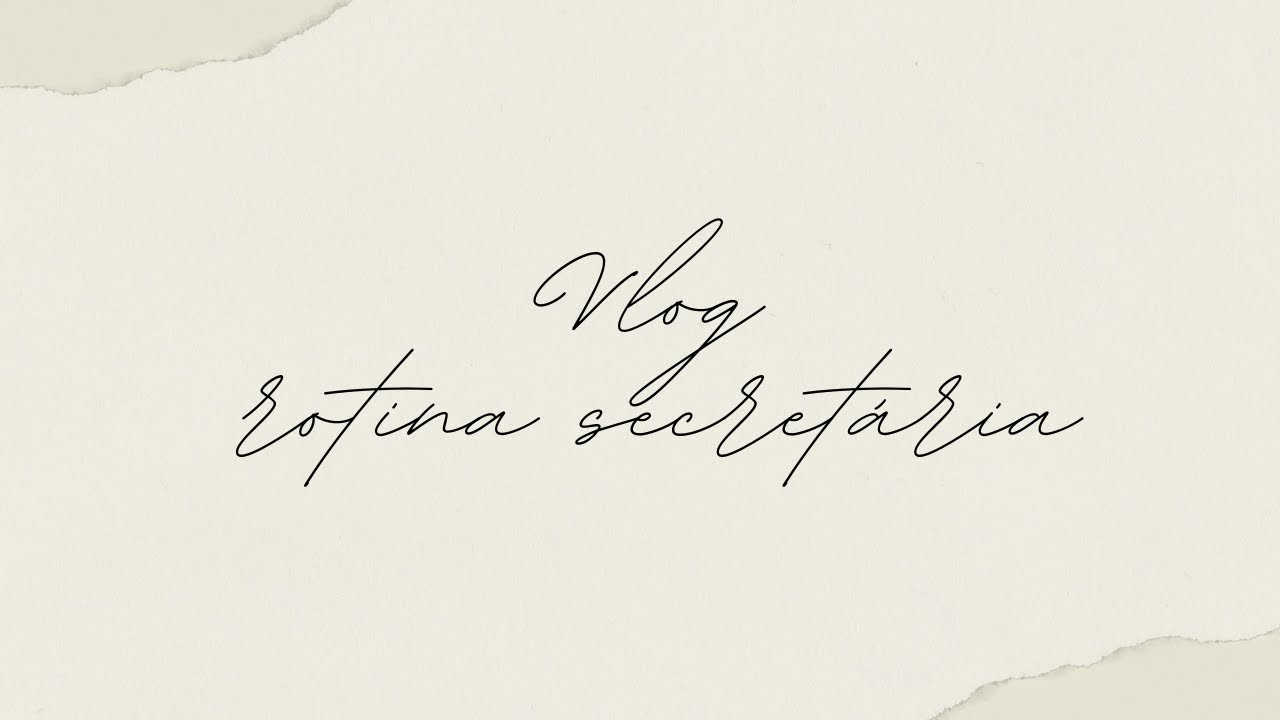 Vlog
rotina secretária